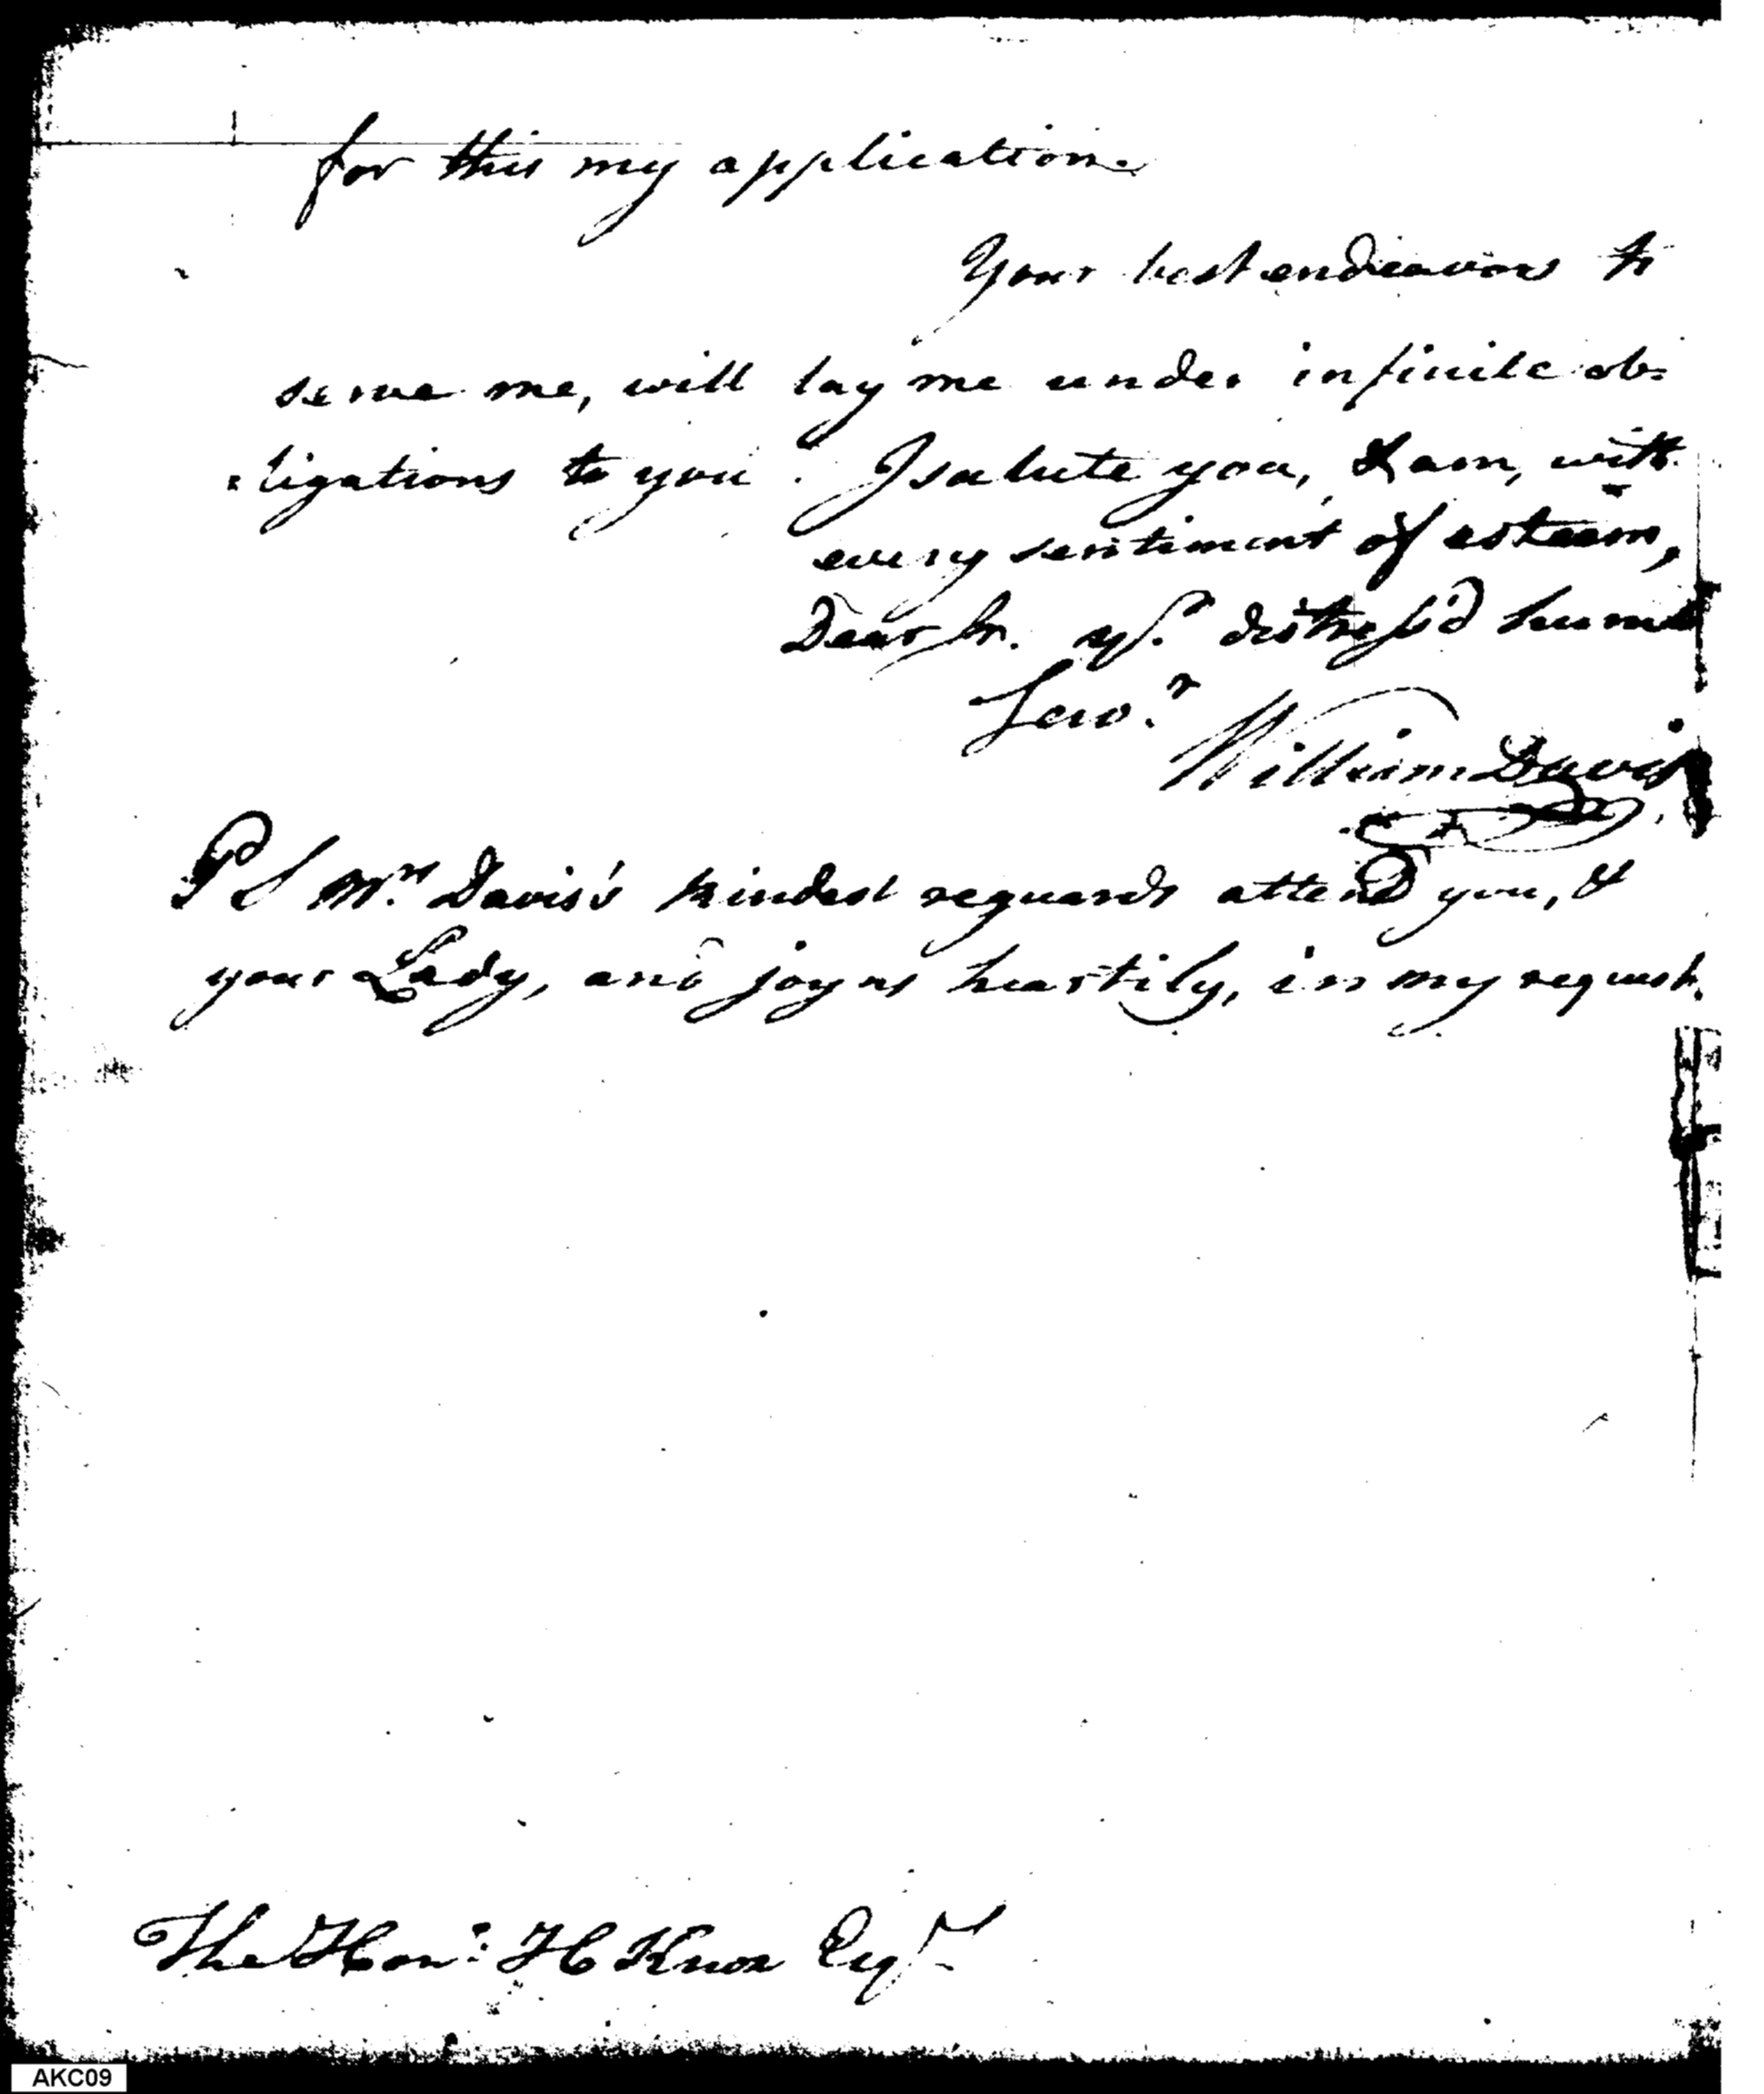 for this my application.
Your best endeavors to
serve me, will lay me under infinite ob:
:ligations to you. I salute you, & am, with
every sentiment of esteem,
Dear Sr. yr. distress'd humb
Servr.
William Davis
PS Mrs Davis's kindest reguards attend you, &
your Lady, and joyns heartily, in my request.
The Hon: H Knox Esqr
AKC09